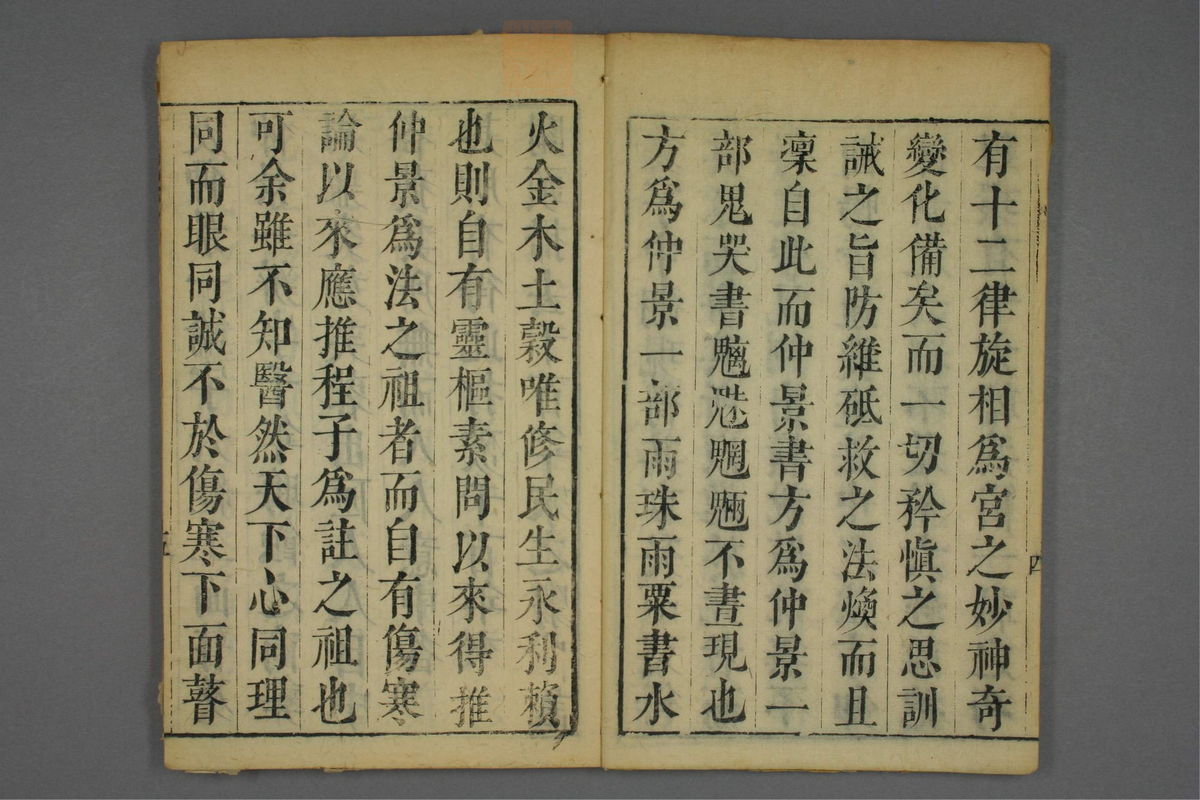 有十二律旋相爲宮之妙神奇
變化備矣而一切矜愼之思訓
誡之旨防維砥救之法煥而且
凜自此而仲景書方爲仲景一
部鬼哭書魑魅魍魎不晝現也
方爲仲景一部雨珠雨粟書水
四
火金木土榖唯修民生永利頼
也則自有靈樞素問以來得推
仲景爲法之祖者而自有傷寒
論以來應推程子爲註之祖也
可余雖不知醫然天下心同理
同而眼同誠不於傷寒下面瞽
五